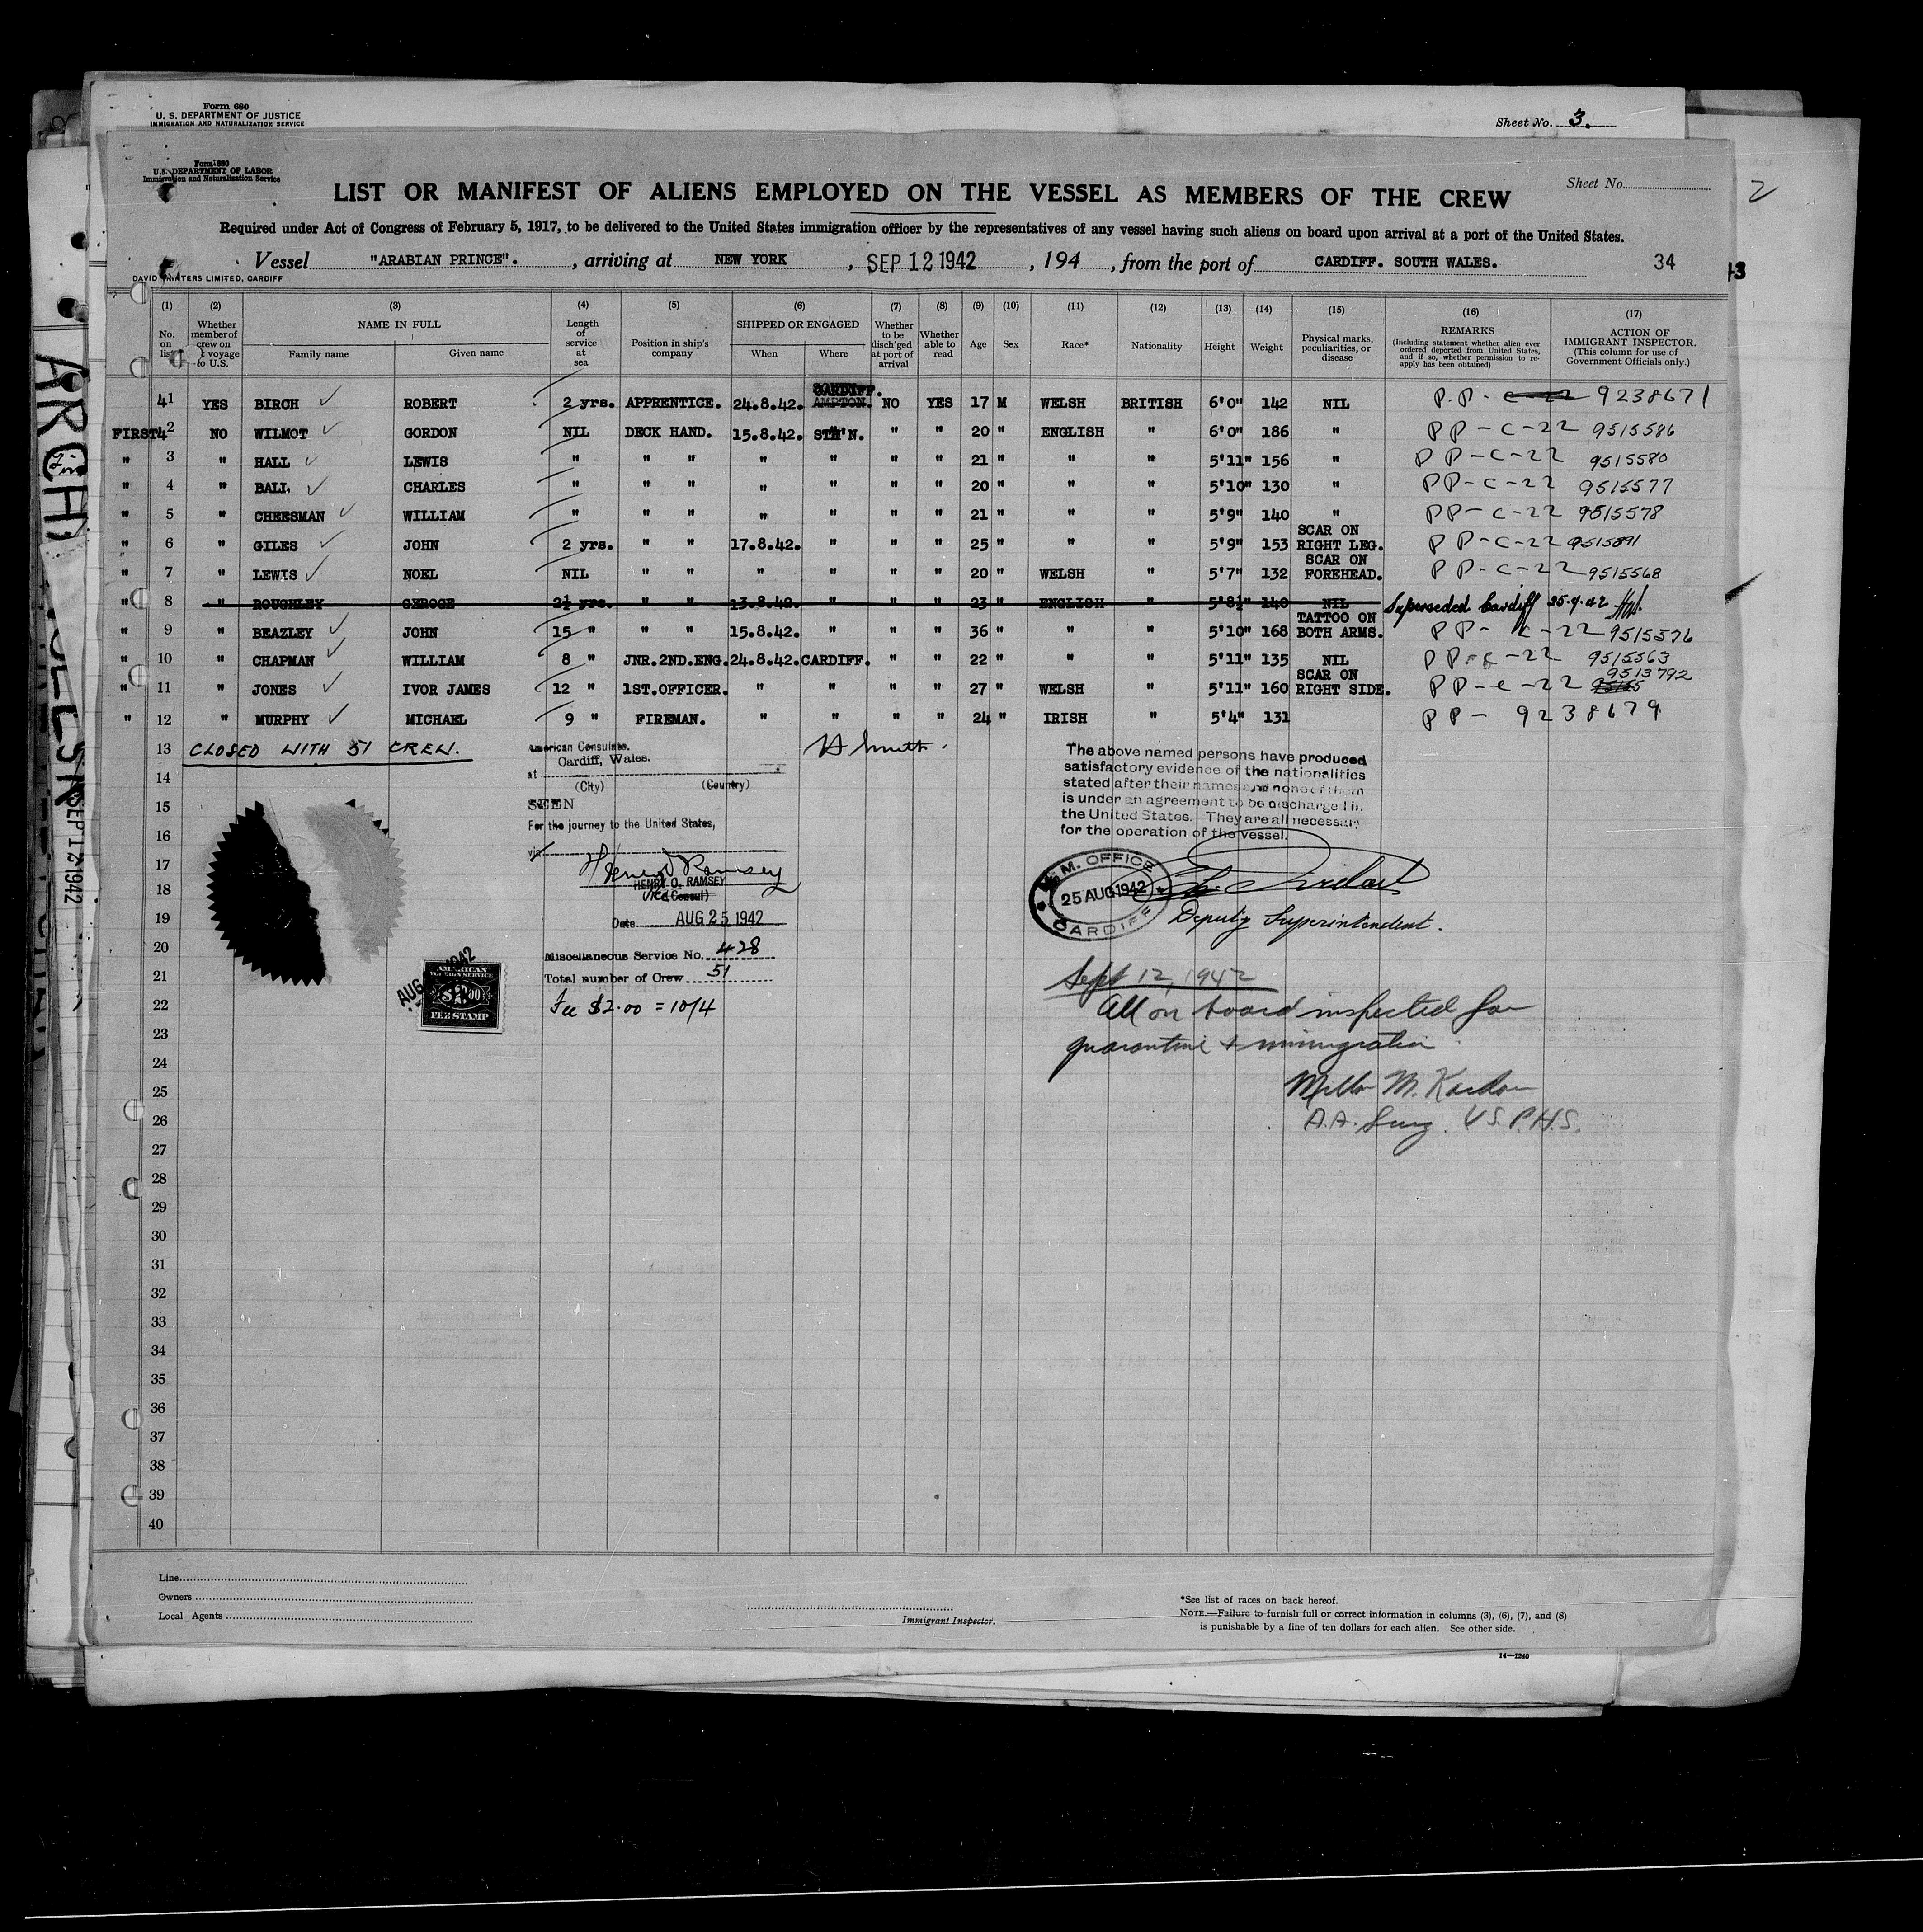 Form 680
U. S. DEPARTMENT OF JUSTICE
IMMIGRATION AND NATURALIZATION SERVICE
Sheet No. 3.
Form 680
U.S. DEPARTMENT OF LABOR
Immigration and Naturalization Service
Sheet No.
2
LIST OR MANIFEST OF ALIENS EMPLOYED ON THE VESSEL AS MEMBERS OF THE CREW
Required under Act of Congress of February 5, 1917, to be delivered to the United States immigration officer by the representatives of any vessel having such aliens on board upon arrival at a port of the United States.
Vessel "ARABIAN PRINCE". , arriving at NEW YORK , SEP 12 1942 , 194 , from the port of CARDIFF. SOUTH WALES. 34
DAVID WATERS LIMITED, CARDIFF
(1) (2) (3) (4) (5) (6) (7) (8) (9) (10) (11) (12) (13) (14) (15) (16) (17)
No. on list
Whether member of crew on voyage to U.S.
NAME IN FULL
Family name Given name
Length of service at sea
Position in ship's company
SHIPPED OR ENGAGED
When Where
Whether to be disch'ged at port of arrival
Whether able to read
Age
Sex
Race*
Nationality
Height
Weight
Physical marks, peculiarities, or disease
REMARKS
(Including statement whether alien ever ordered deported from United States, and if so, whether permission to re-apply has been obtained)
ACTION OF IMMIGRANT INSPECTOR.
(This column for use of Government Officials only.)
41 YES BIRCH ROBERT 2 yrs. APPRENTICE. 24.8.42. CARDIFF. NO YES 17 M WELSH BRITISH 6'0" 142 NIL P.P. - C-22 9238671
FIRST 42 NO WILMOT GORDON NIL DECK HAND. 15.8.42. STH'N. " " 20 " ENGLISH " 6'0" 186 " PP-C-22 9515586
" 3 " HALL LEWIS " " " " " " " 21 " " " 5'11" 156 " PP-C-22 9515580
" 4 " BALL CHARLES " " " " " " " 20 " " " 5'10" 130 " PP-C-22 9515577
" 5 " CHEESMAN WILLIAM " " " " " " " 21 " " " 5'9" 140 " PP-C-22 9515578
" 6 " GILES JOHN 2 yrs. " " 17.8.42. " " " 25 " " " 5'9" 153 SCAR ON RIGHT LEG. PP-C-22 9515891
" 7 " LEWIS NOEL NIL " " " " " " 20 " WELSH " 5'7" 132 SCAR ON FOREHEAD. PP-C-22 9515568
" 8 " ROUGHLEY GEROGE 2½ yrs. " " 13.8.42. " " " 23 " ENGLISH " 5'8½" 140 NIL Superseded Cardiff
" 9 " BEAZLEY JOHN 15 " " " 15.8.42. " " " 36 " " " 5'10" 168 TATTOO ON BOTH ARMS. PP-C-22 9515576
" 10 " CHAPMAN WILLIAM 8 " JNR.2ND.ENG. 24.8.42. CARDIFF. " " 22 " " " 5'11" 135 NIL PP-C-22 9515563
" 11 " JONES IVOR JAMES 12 " 1ST.OFFICER. " " " " 27 " WELSH " 5'11" 160 SCAR ON RIGHT SIDE. PP-C-22 9513792
" 12 " MURPHY MICHAEL 9 " FIREMAN. " " " " 24 " IRISH " 5'4" 131 PP- 9238679
13 CLOSED WITH 51 CREW.
14
15
16
17
18
19
20
21
22
23
24
25
26
27
28
29
30
31
32
33
34
35
36
37
38
39
40
American Consulate.
Cardiff, Wales.
at
(City) (Country)
SEEN
For the journey to the United States,
via
Henry O Ramsey
HENRY O. RAMSEY
Vice Consul)
Date AUG 25 1942
Miscellaneous Service No. 428
Total number of Crew 51
Fee $2.00 = 10/4
AMERICAN
FOREIGN SERVICE
FEE STAMP
The above named persons have produced
satisfactory evidence of the nationalities
stated after their names and none of them
is under an agreement to be discharged in
the United States. They are all necessary
for the operation of the vessel.
M.M. OFFICE
25 AUG 1942
CARDIFF
Deputy Superintendent.
Sept 12, 1942
All on board inspected for
quarantine & immigration
A.A. Surg. U.S.P.H.S.
SEP 12 1942
Line
Owners
Local Agents
Immigrant Inspector.
*See list of races on back hereof.
NOTE.—Failure to furnish full or correct information in columns (3), (6), (7), and (8)
is punishable by a fine of ten dollars for each alien. See other side.
14—1240